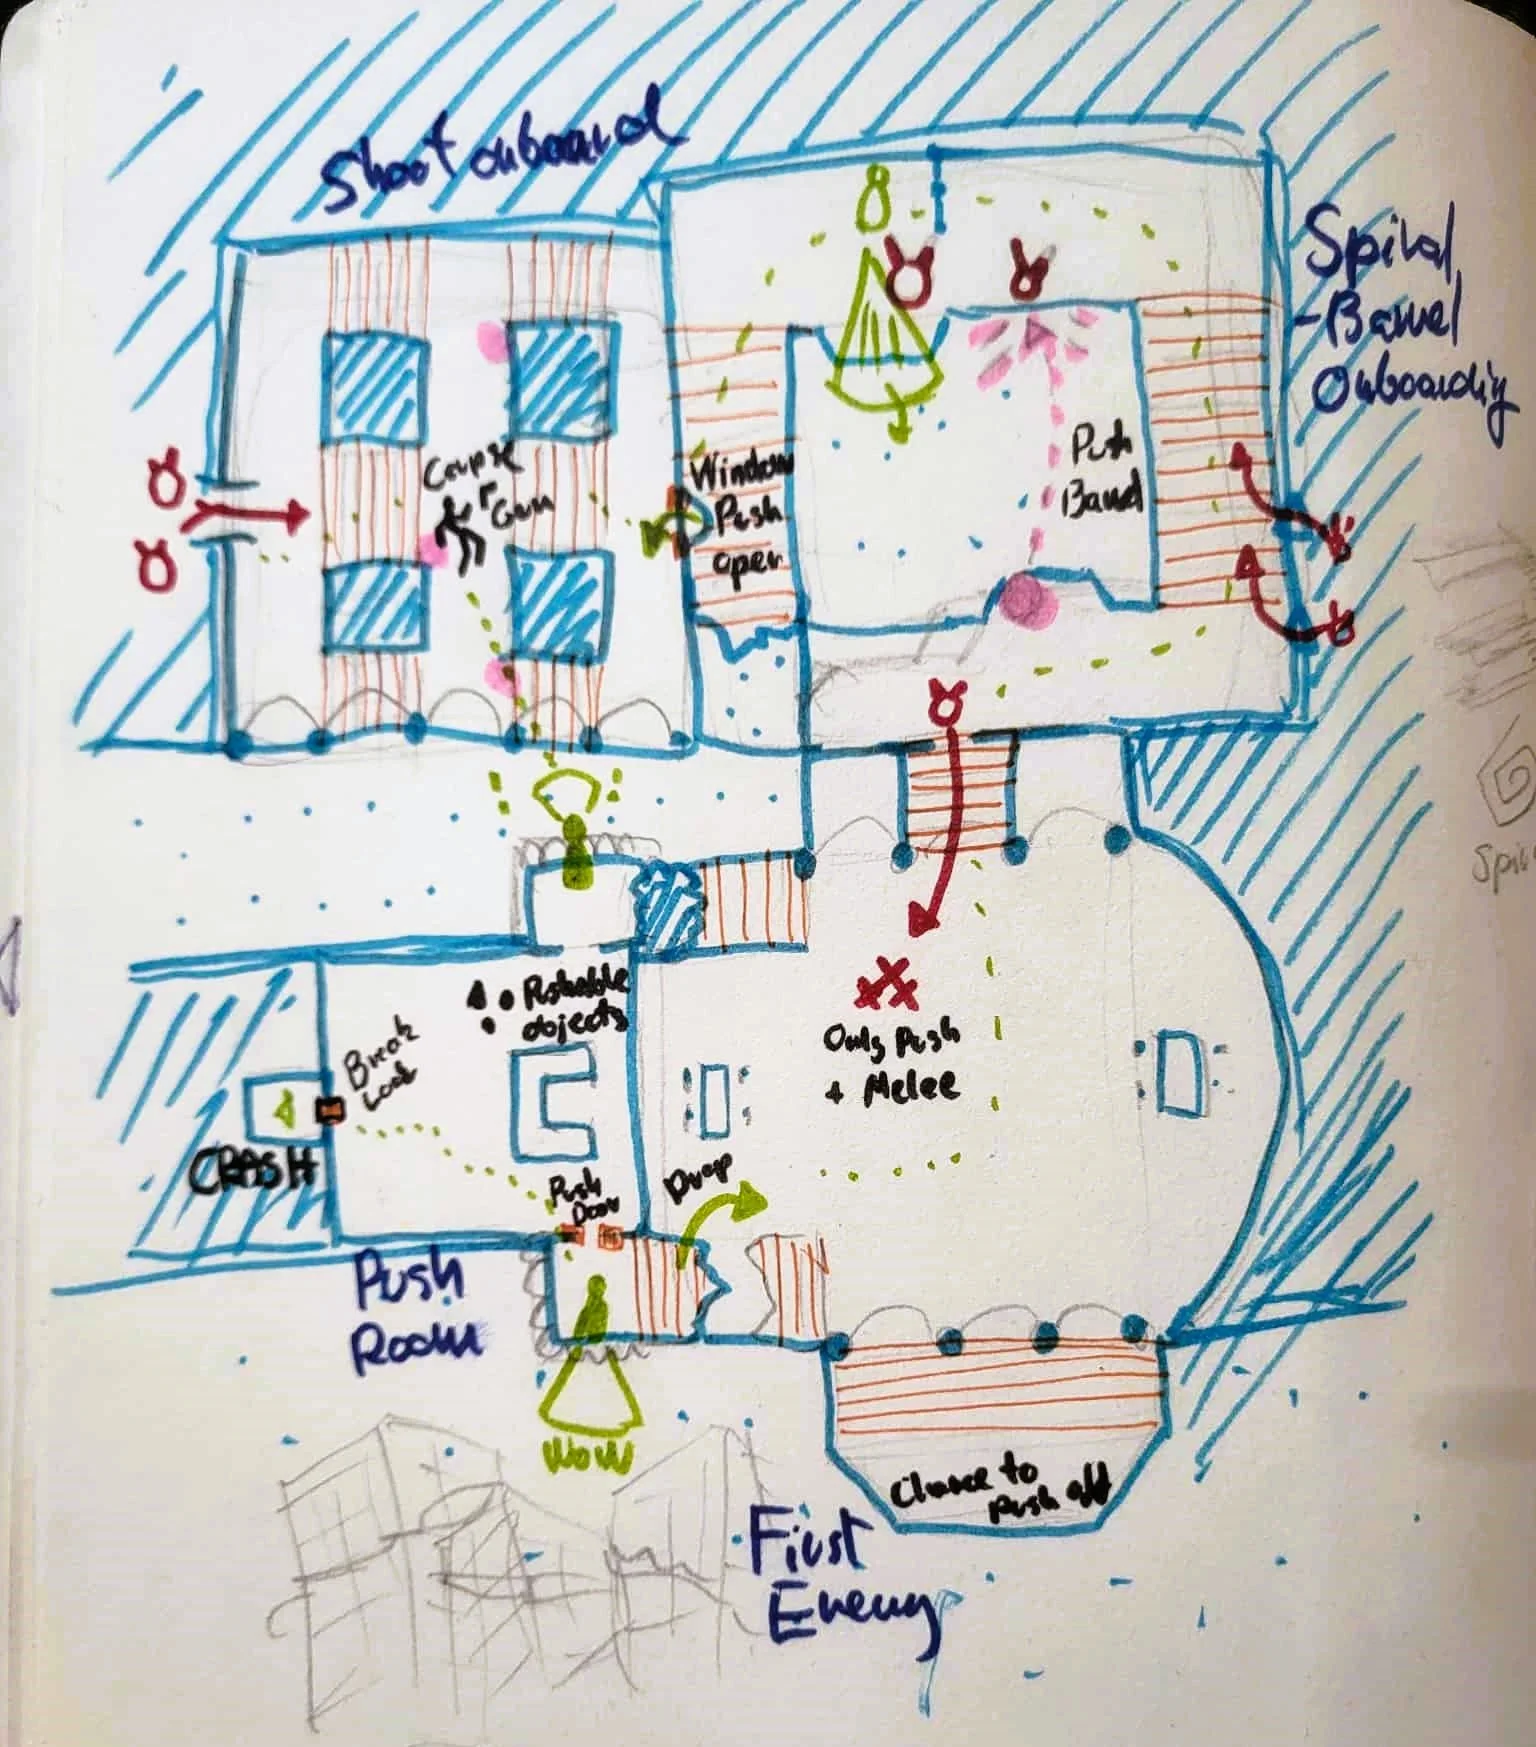 Shoot onboard
Spiral
-Barrel
Onboarding
Corpse
Gun
Window
Push
open
Push
Barrel
Pushable
objects
Only Push
+ Melee
Break
Lock
CRASH
Push
Door
Drop
Push
Room
WOW
Chance to
Push off
First
Enemy